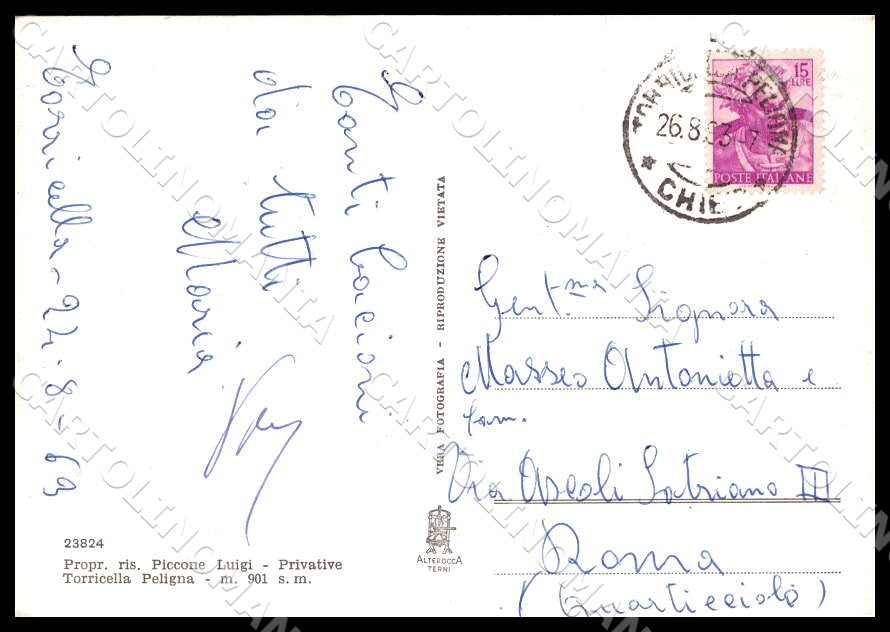 Torricella - 24.8.63
Tanti bacioni
da tutti
Maria
23824
Propr. ris. Piccone Luigi - Privative
Torricella Peligna - m. 901 s. m.
VERA FOTOGRAFIA - RIPRODUZIONE VIETATA
ALTEROCCA
TERNI
15
LIRE
POSTE ITALIANE
TORRICELLA PELIGNA
26.8.63
* CHIETI *
Gent.ma Signora
Masseo Antonietta e
fam.
Via Ascoli Satriano III
Roma
(Quarticciolo)
CARTOLINOMANIA